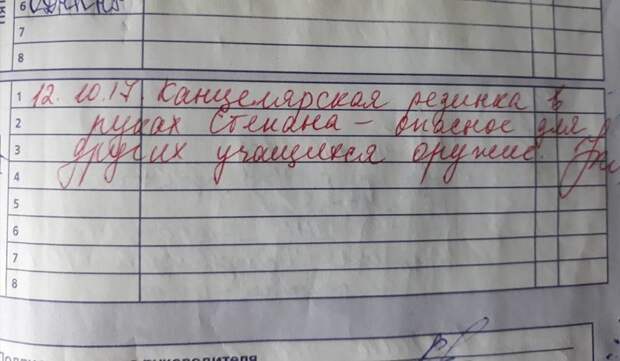 6
7
8
1 12.10.17 Канцелярская резинка в
2 руках Степана – опасное для
3 других учащихся оружие.
4
5
6
7
8
руководителя